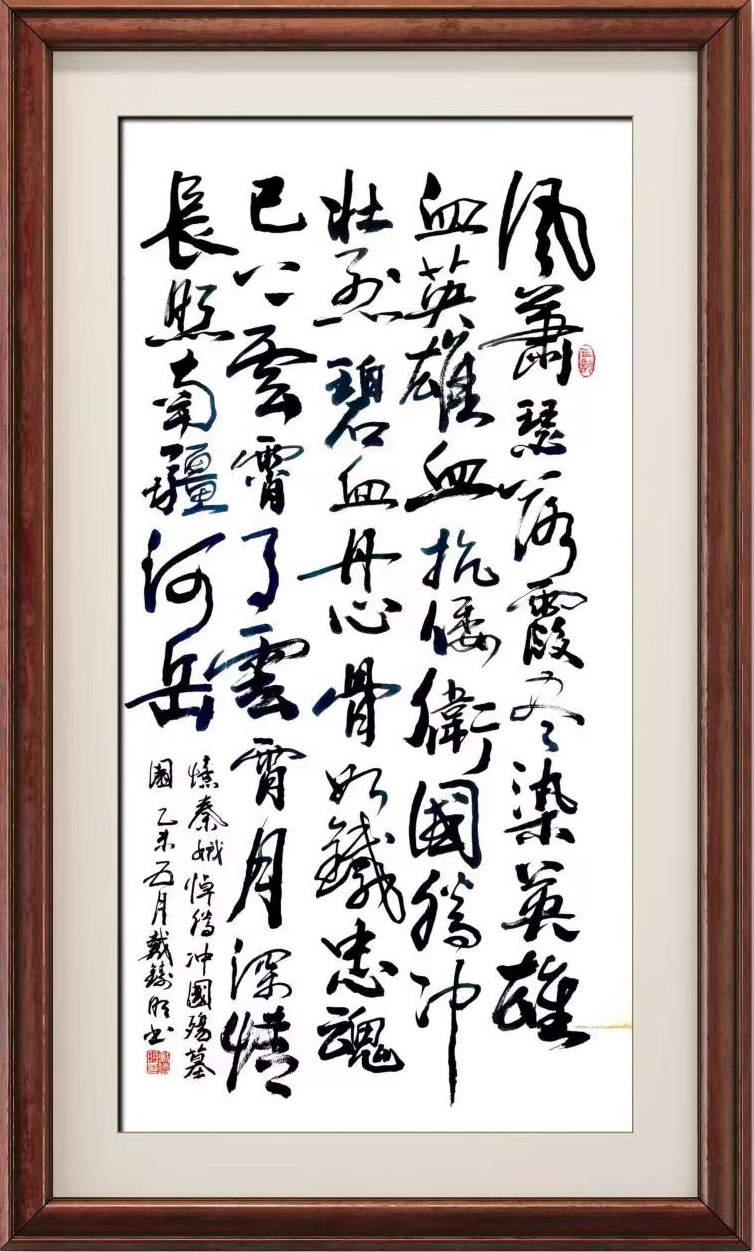 風蕭瑟落霞尽染英雄
血英雄血抗倭衛國騰冲
壯烈碧血丹心骨如鐵忠魂
已云霄月雲霄月深情
長照南疆河岳
憶秦娥悼騰冲國殤墓
園乙未五月戴鑄明书